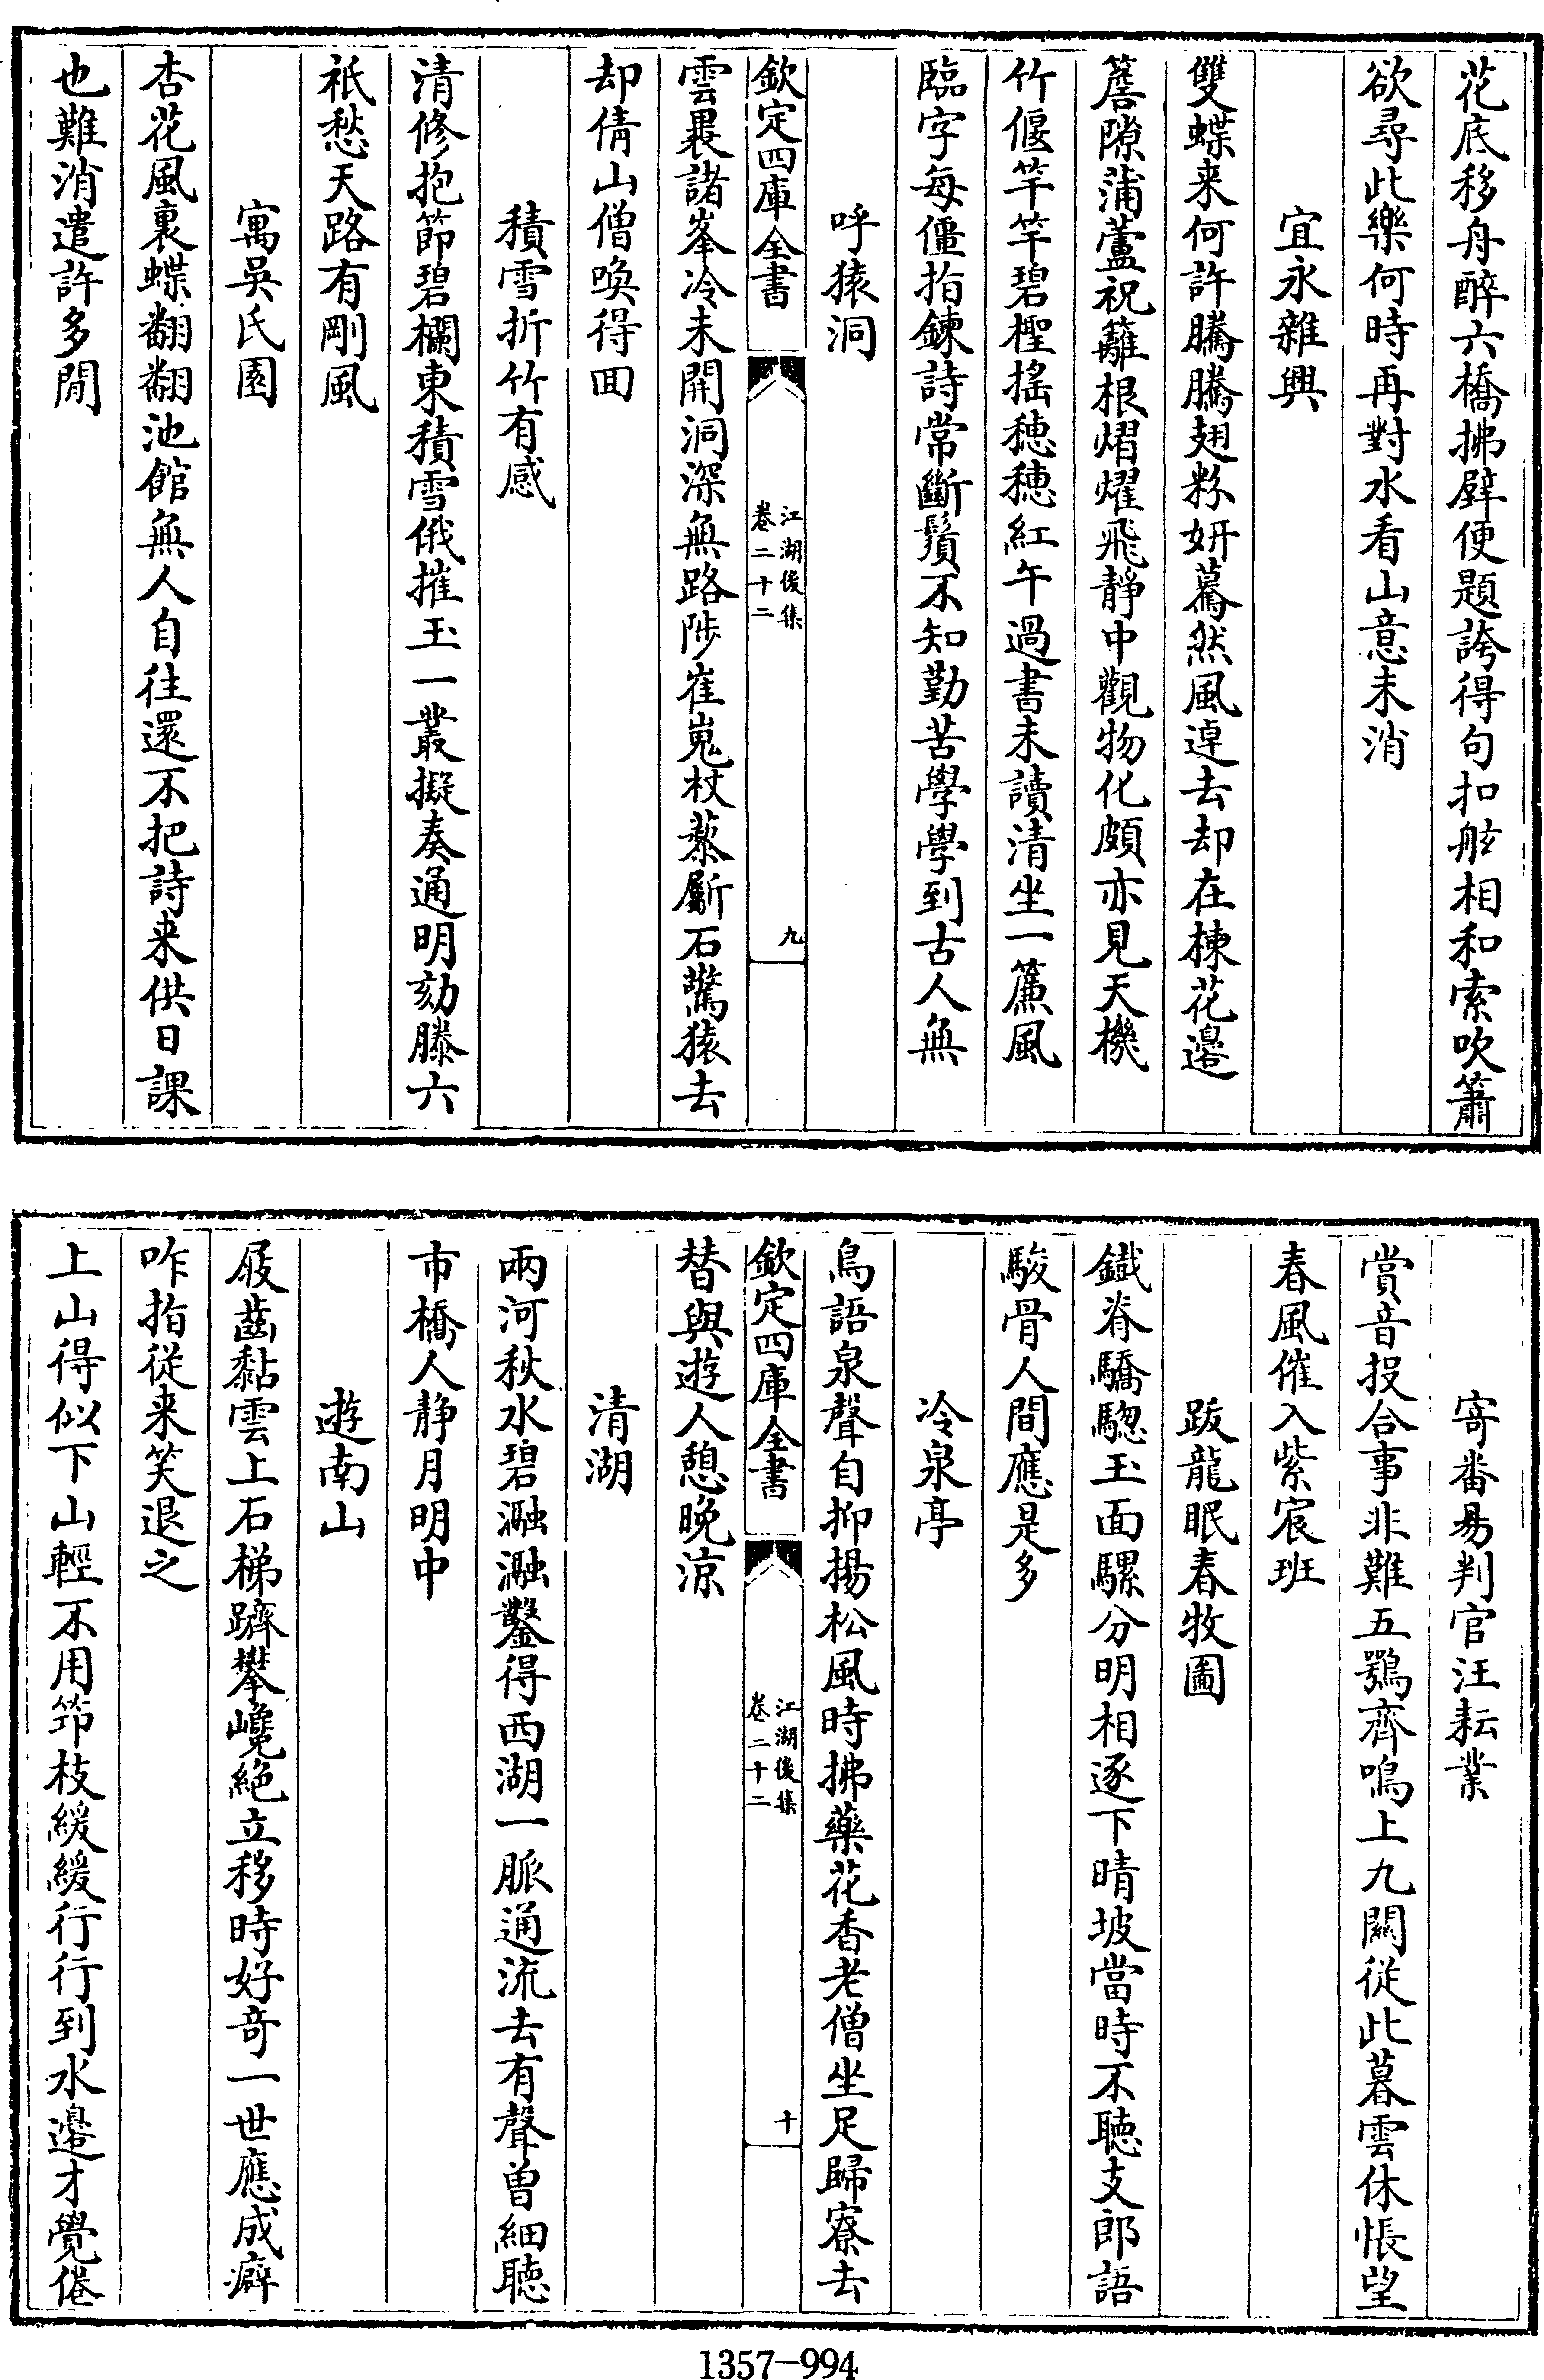 花底移舟醉六橋拂壁便題誇得句扣舷相和索吹簫
欲尋此樂何時再對水看山意未消
宜永雜興
雙蝶来何許騰騰翅粉妍驀然風逴去却在楝花邉
簷隙蒲蘆祝籬根熠燿飛静中觀物化頗亦見天機
竹偃竿竿碧檉揺穂穂紅午過書未讀清坐一簾風
臨字每僵指鍊詩常斷鬚不知勤苦學學到古人無
呼猿洞
欽定四庫全書
江湖後集
卷二十二
九
雲裹諸峯冷未開洞深無路陟崔嵬杖藜斸石驚猿去
却倩山僧喚得回
積雪折竹有感
清修抱節碧欄東積雪俄摧玉一叢擬奏通明劾滕六
祇愁天路有剛風
寓吳氏園
杏花風裏蝶翻翻池館無人自往還不把詩来供日課
也難消遣許多閒
寄番昜判官汪耘業
賞音投合事非難五鶚齊鳴上九關從此暮雲休悵望
春風催入紫宸班
跋龍眠春牧圖
鐵脊驕驄玉面騾分明相逐下晴坡當時不聽支郎語
駿骨人間應是多
冷泉亭
鳥語泉聲自抑揚松風時拂藥花香老僧坐足歸寮去
欽定四庫全書
江湖後集
卷二十二
十
替與遊人憩晚涼
清湖
兩河秋水碧瀜瀜鑿得西湖一脈通流去有聲曾細聽
市橋人静月明中
遊南山
屐齒黏雲上石梯躋攀巉絶立移時好奇一世應成癖
咋指從来笑退之
上山得似下山輕不用筇枝緩緩行行到水邉才覺倦
1357-994